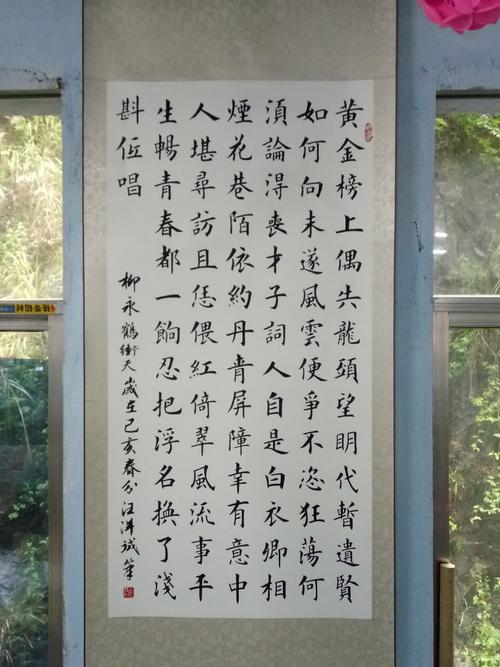 黃金榜上偶失龍頭望眀代暫遺賢
如何向未遂風雲便爭不恣狂蕩何
湏論淂喪才子詞人自是白衣卿相
煙花巷陌依約丹青屏障幸有意中
人堪尋訪且恁偎紅倚翠風流事平
生暢青春都一餉忍把浮名換了淺
斟低唱
柳永鶴衝天歲在己亥春分汪洋誠筆